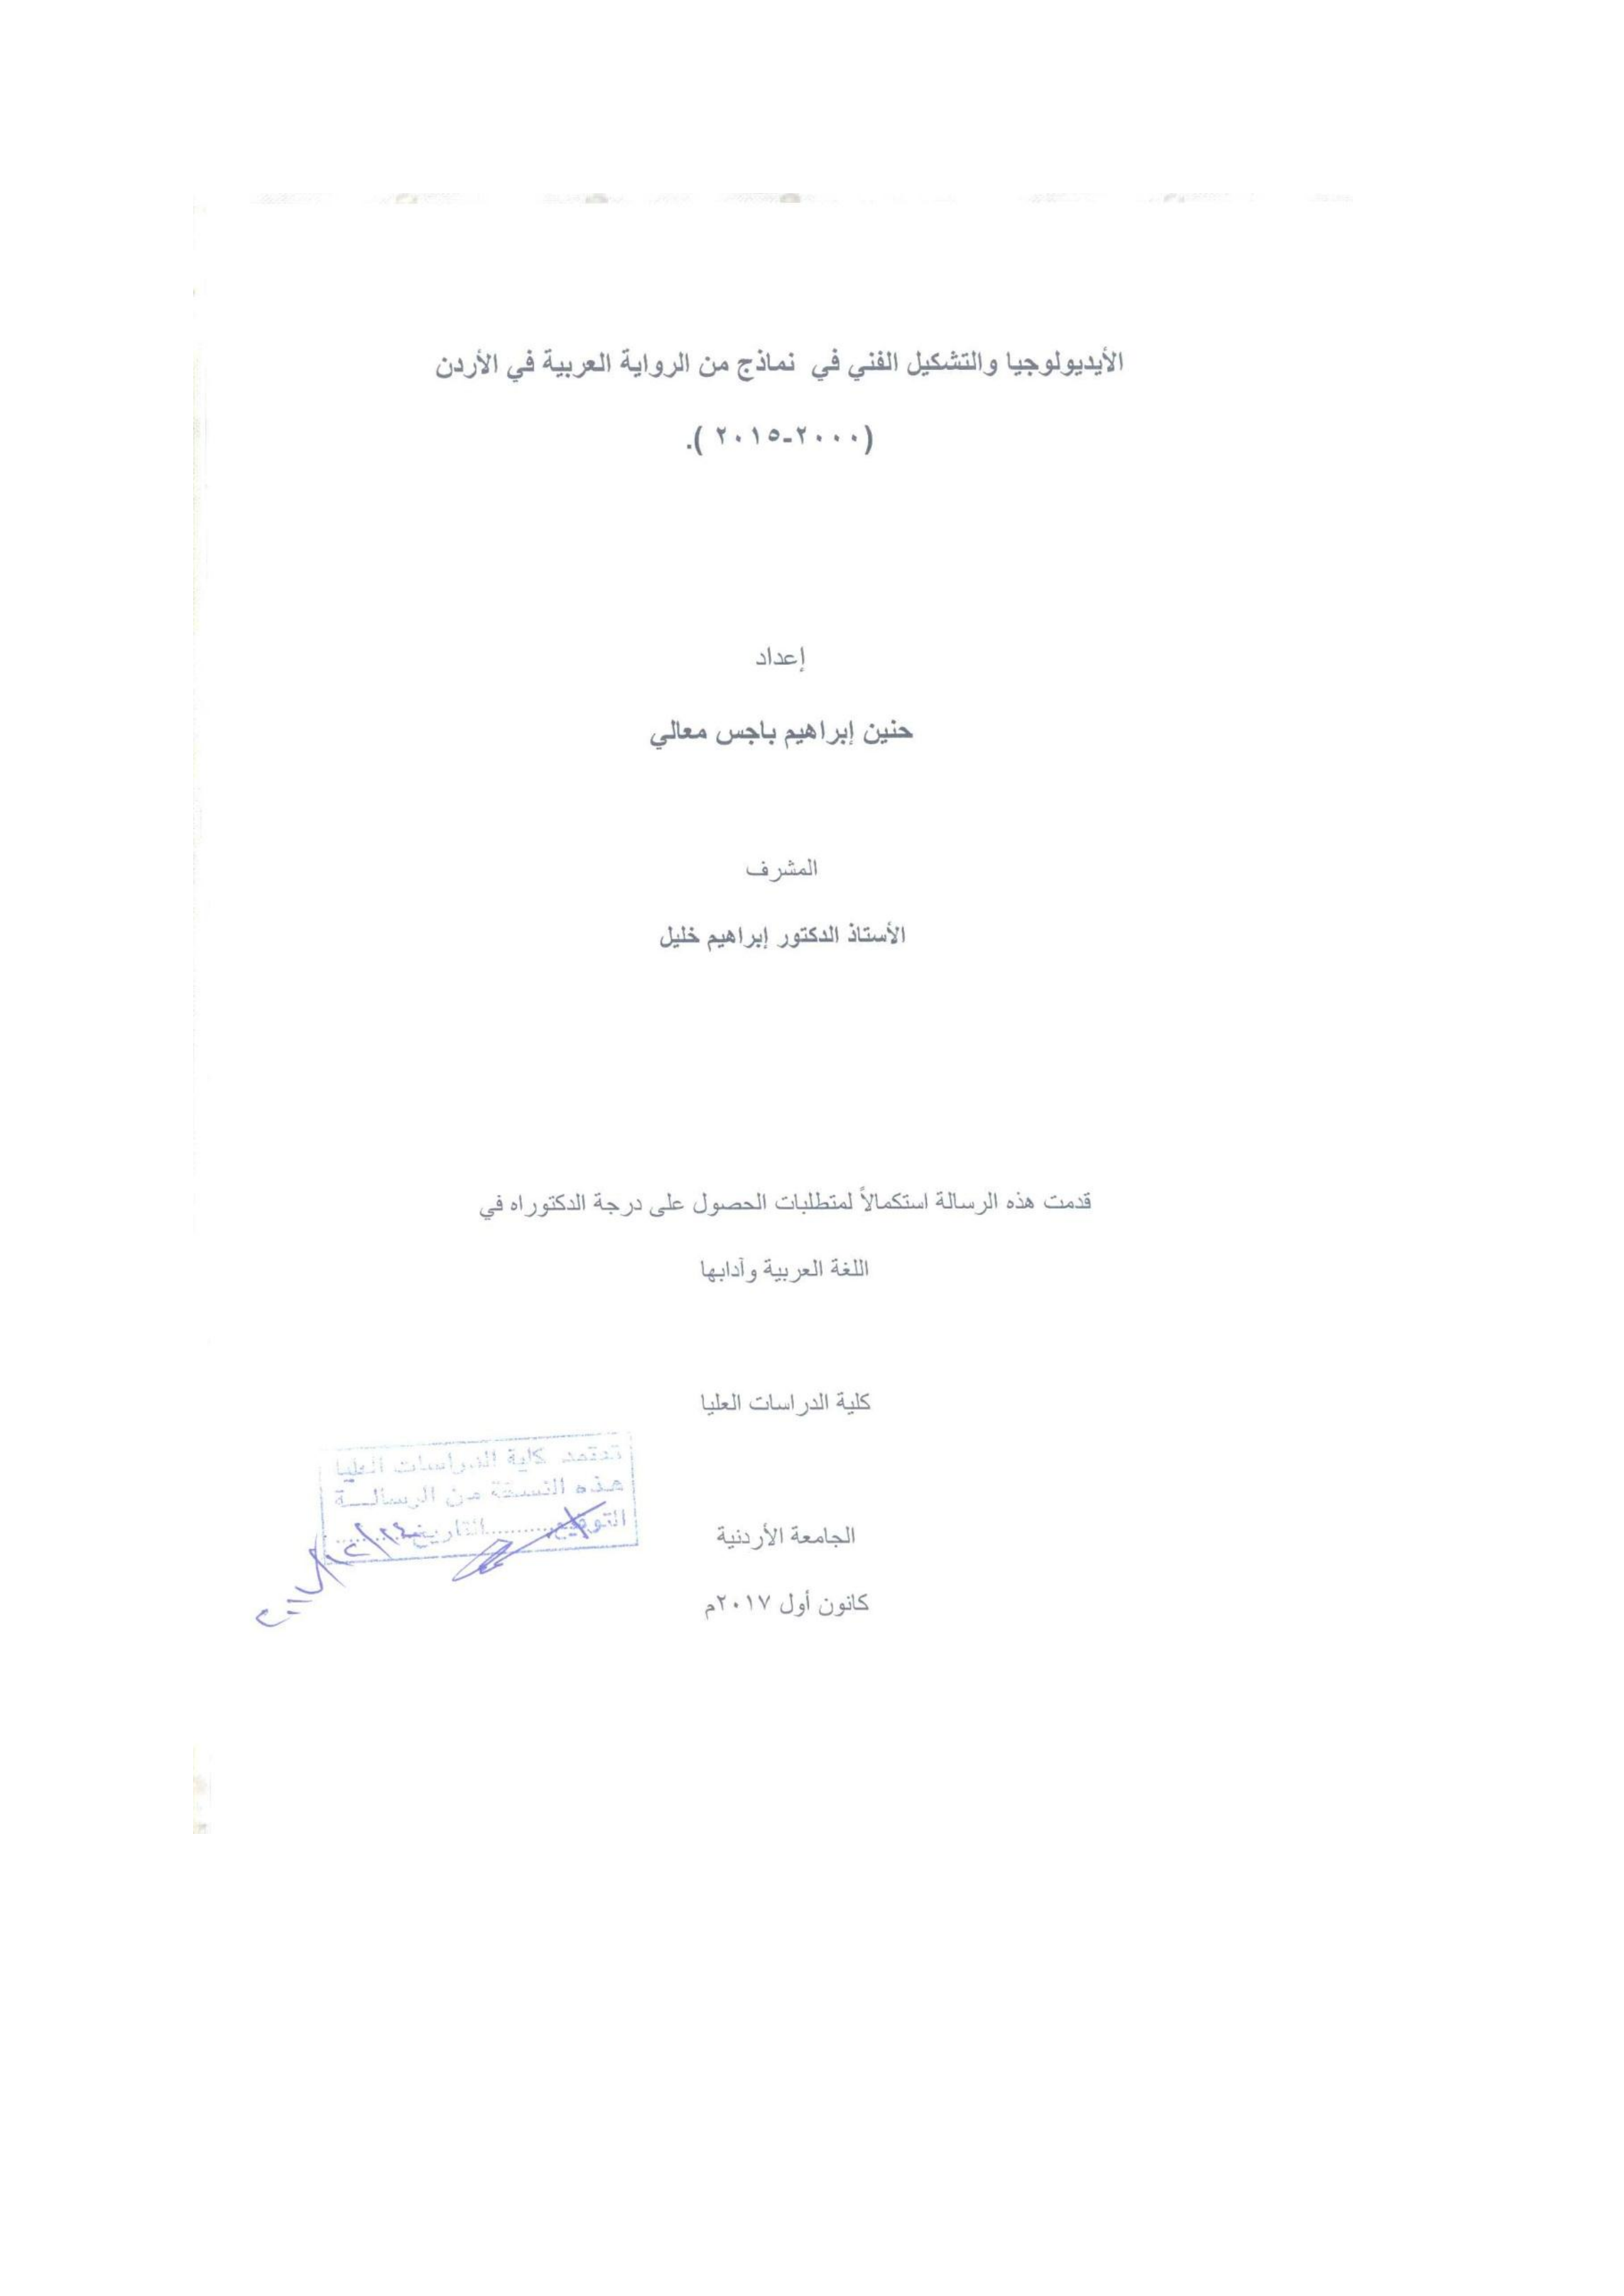 الأيديولوجيا والتشكيل الفني في نماذج من الرواية العربية في الأردن
(٢٠٠٠-٢٠١٥ ).
إعداد
حنين إبراهيم باجس معالي
المشرف
الأستاذ الدكتور إبراهيم خليل
قدمت هذه الرسالة استكمالاً لمتطلبات الحصول على درجة الدكتوراه في
اللغة العربية وآدابها
كلية الدراسات العليا
تعتمد كلية الدراسات العليا
هذه النسخة من الرسالـــة
التوقيع..........التاريخ
الجامعة الأردنية
كانون أول ٢٠١٧م